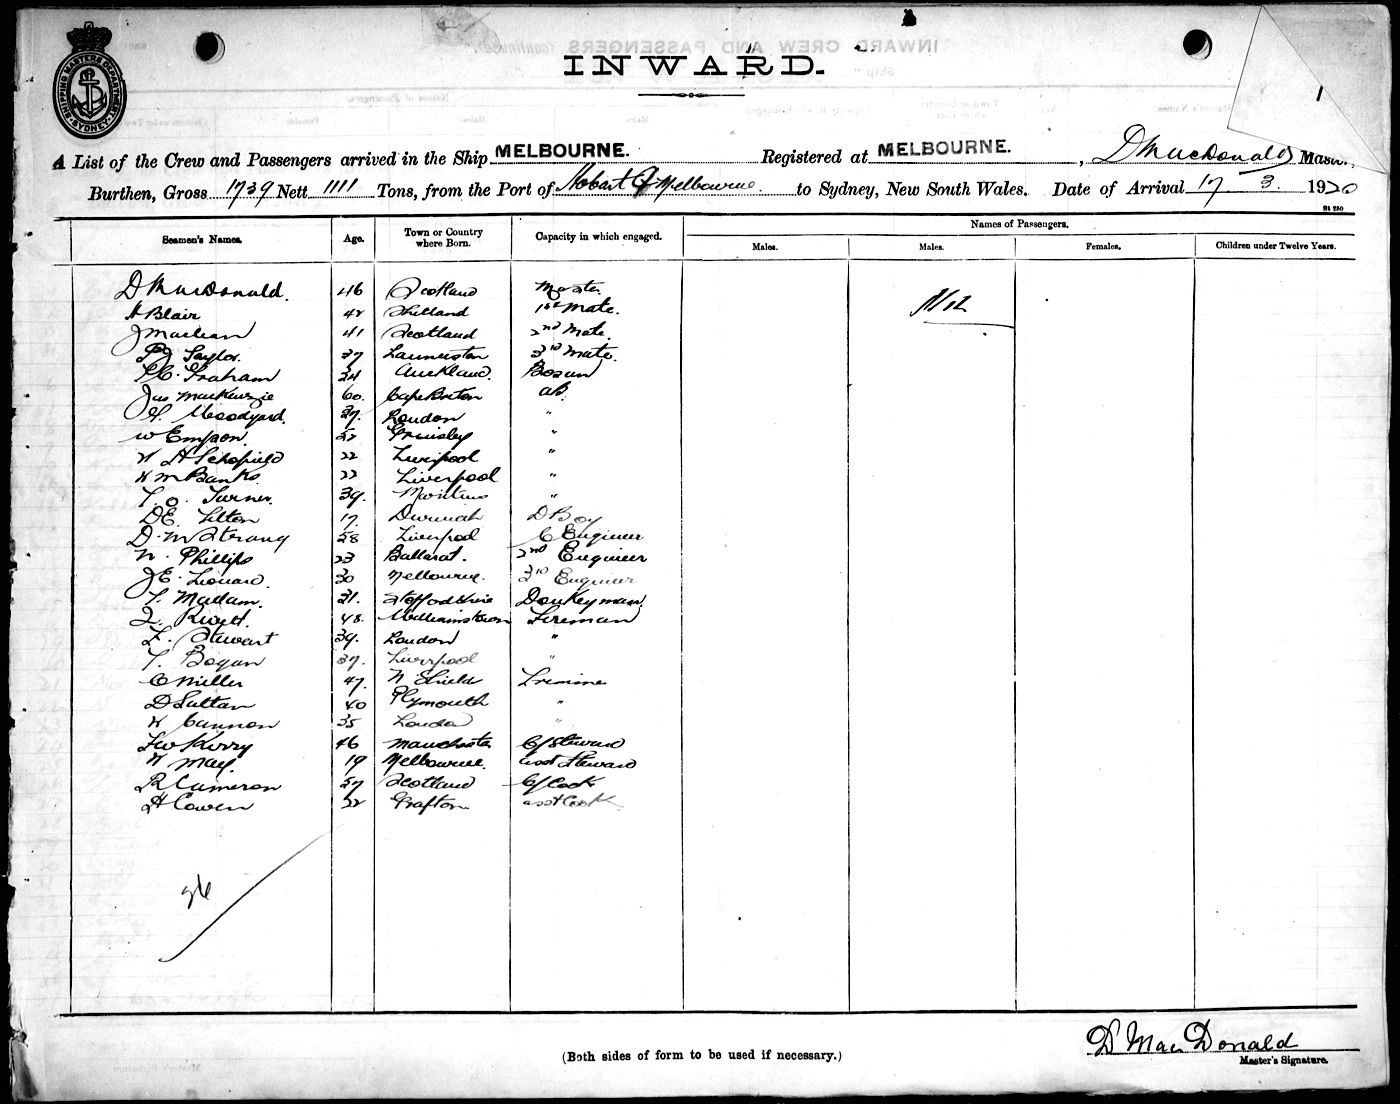 SHIPPING MASTERS DEPARTMENT SYDNEY
INWARD.
1
A List of the Crew and Passengers arrived in the Ship MELBOURNE. Registered at MELBOURNE. , D MacDonald Master.
Burthen, Gross 1739 Nett 1111 Tons, from the Port of Hobart & Melbourne to Sydney, New South Wales. Date of Arrival 17 3. 1920
Names of Passengers.
Seamen's Names. Age. Town or Country where Born. Capacity in which engaged. Males. Males. Females. Children under Twelve Years.
D MacDonald. 46 Scotland Master.
H Blair 42 Shetland 1st Mate.
J Maclean 41 Scotland 2nd Mate
Taylor. 37 Launceston 3rd Mate.
Graham 34 Auckland. Bosun
Jas MacKenzie 60. Cape Breton AB.
Woodyard. 37. London "
W Empson. 52 Grimsby "
W H Schofield 22 Liverpool "
H M Banks 22 Liverpool "
T. O. Turner. 39. Mauritius "
D E. Tilton 17. D Boy
D. M Strang 58 Liverpool C Engineer
N. Phillips 33 Ballarat. 2nd Engineer
J E. Leonard. 30 Melbourne. 3rd Engineer
T. Madam. 31. Staffordshire Donkeyman.
Rivett. 48. Williamstown Fireman
F. Stewart 39. London "
T. Bogan 37. Liverpool "
C Miller 47. N Shield Trimmer
D Sultan 40 Plymouth "
H Cannon 35 London "
F W Kerry 46 Manchester C/Steward
H May. 19 Melbourne. Asst Steward
R Cameron 57 Scotland C/Cook
H Cowen 32 Grafton Asst Cook
26
D MacDonald
Master's Signature.
(Both sides of form to be used if necessary.)